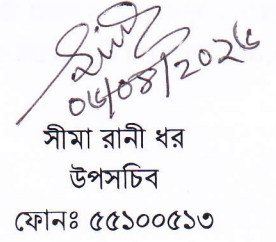 ০৫/০৪/২০২৬
সীমা রানী ধর
উপসচিব
ফোনঃ ৫৫১০০৫১৩